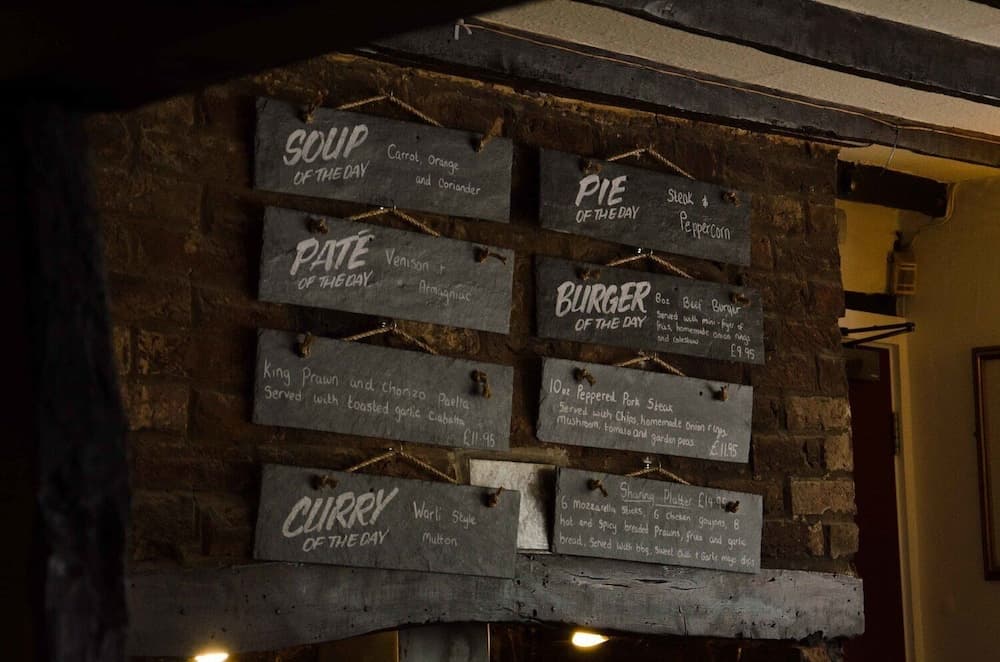 SOUP
OF THE DAY
Carrot, Orange
and Coriander
PATÉ
OF THE DAY
Venison +
Armagnac
King Prawn and Chorizo Paella
Served with toasted garlic Ciabatta
£11.95
CURRY
OF THE DAY
Warli Style
Mutton
PIE
OF THE DAY
Steak &
Peppercorn
BURGER
OF THE DAY
8oz Beef Burger
Served with mini-fryer of
fries, homemade onion rings
and coleslaw
£9.95
10oz Peppered Pork Steak
Served with Chips, homemade onion rings,
mushroom, tomato and garden peas.
£11.95
Sharing Platter
6 Mozzarella Sticks, 6 chicken goujons, 8
hot and spicy breaded Prawns, fries and garlic
bread, Served with bbq, Sweet Chilli + Garlic mayo dips